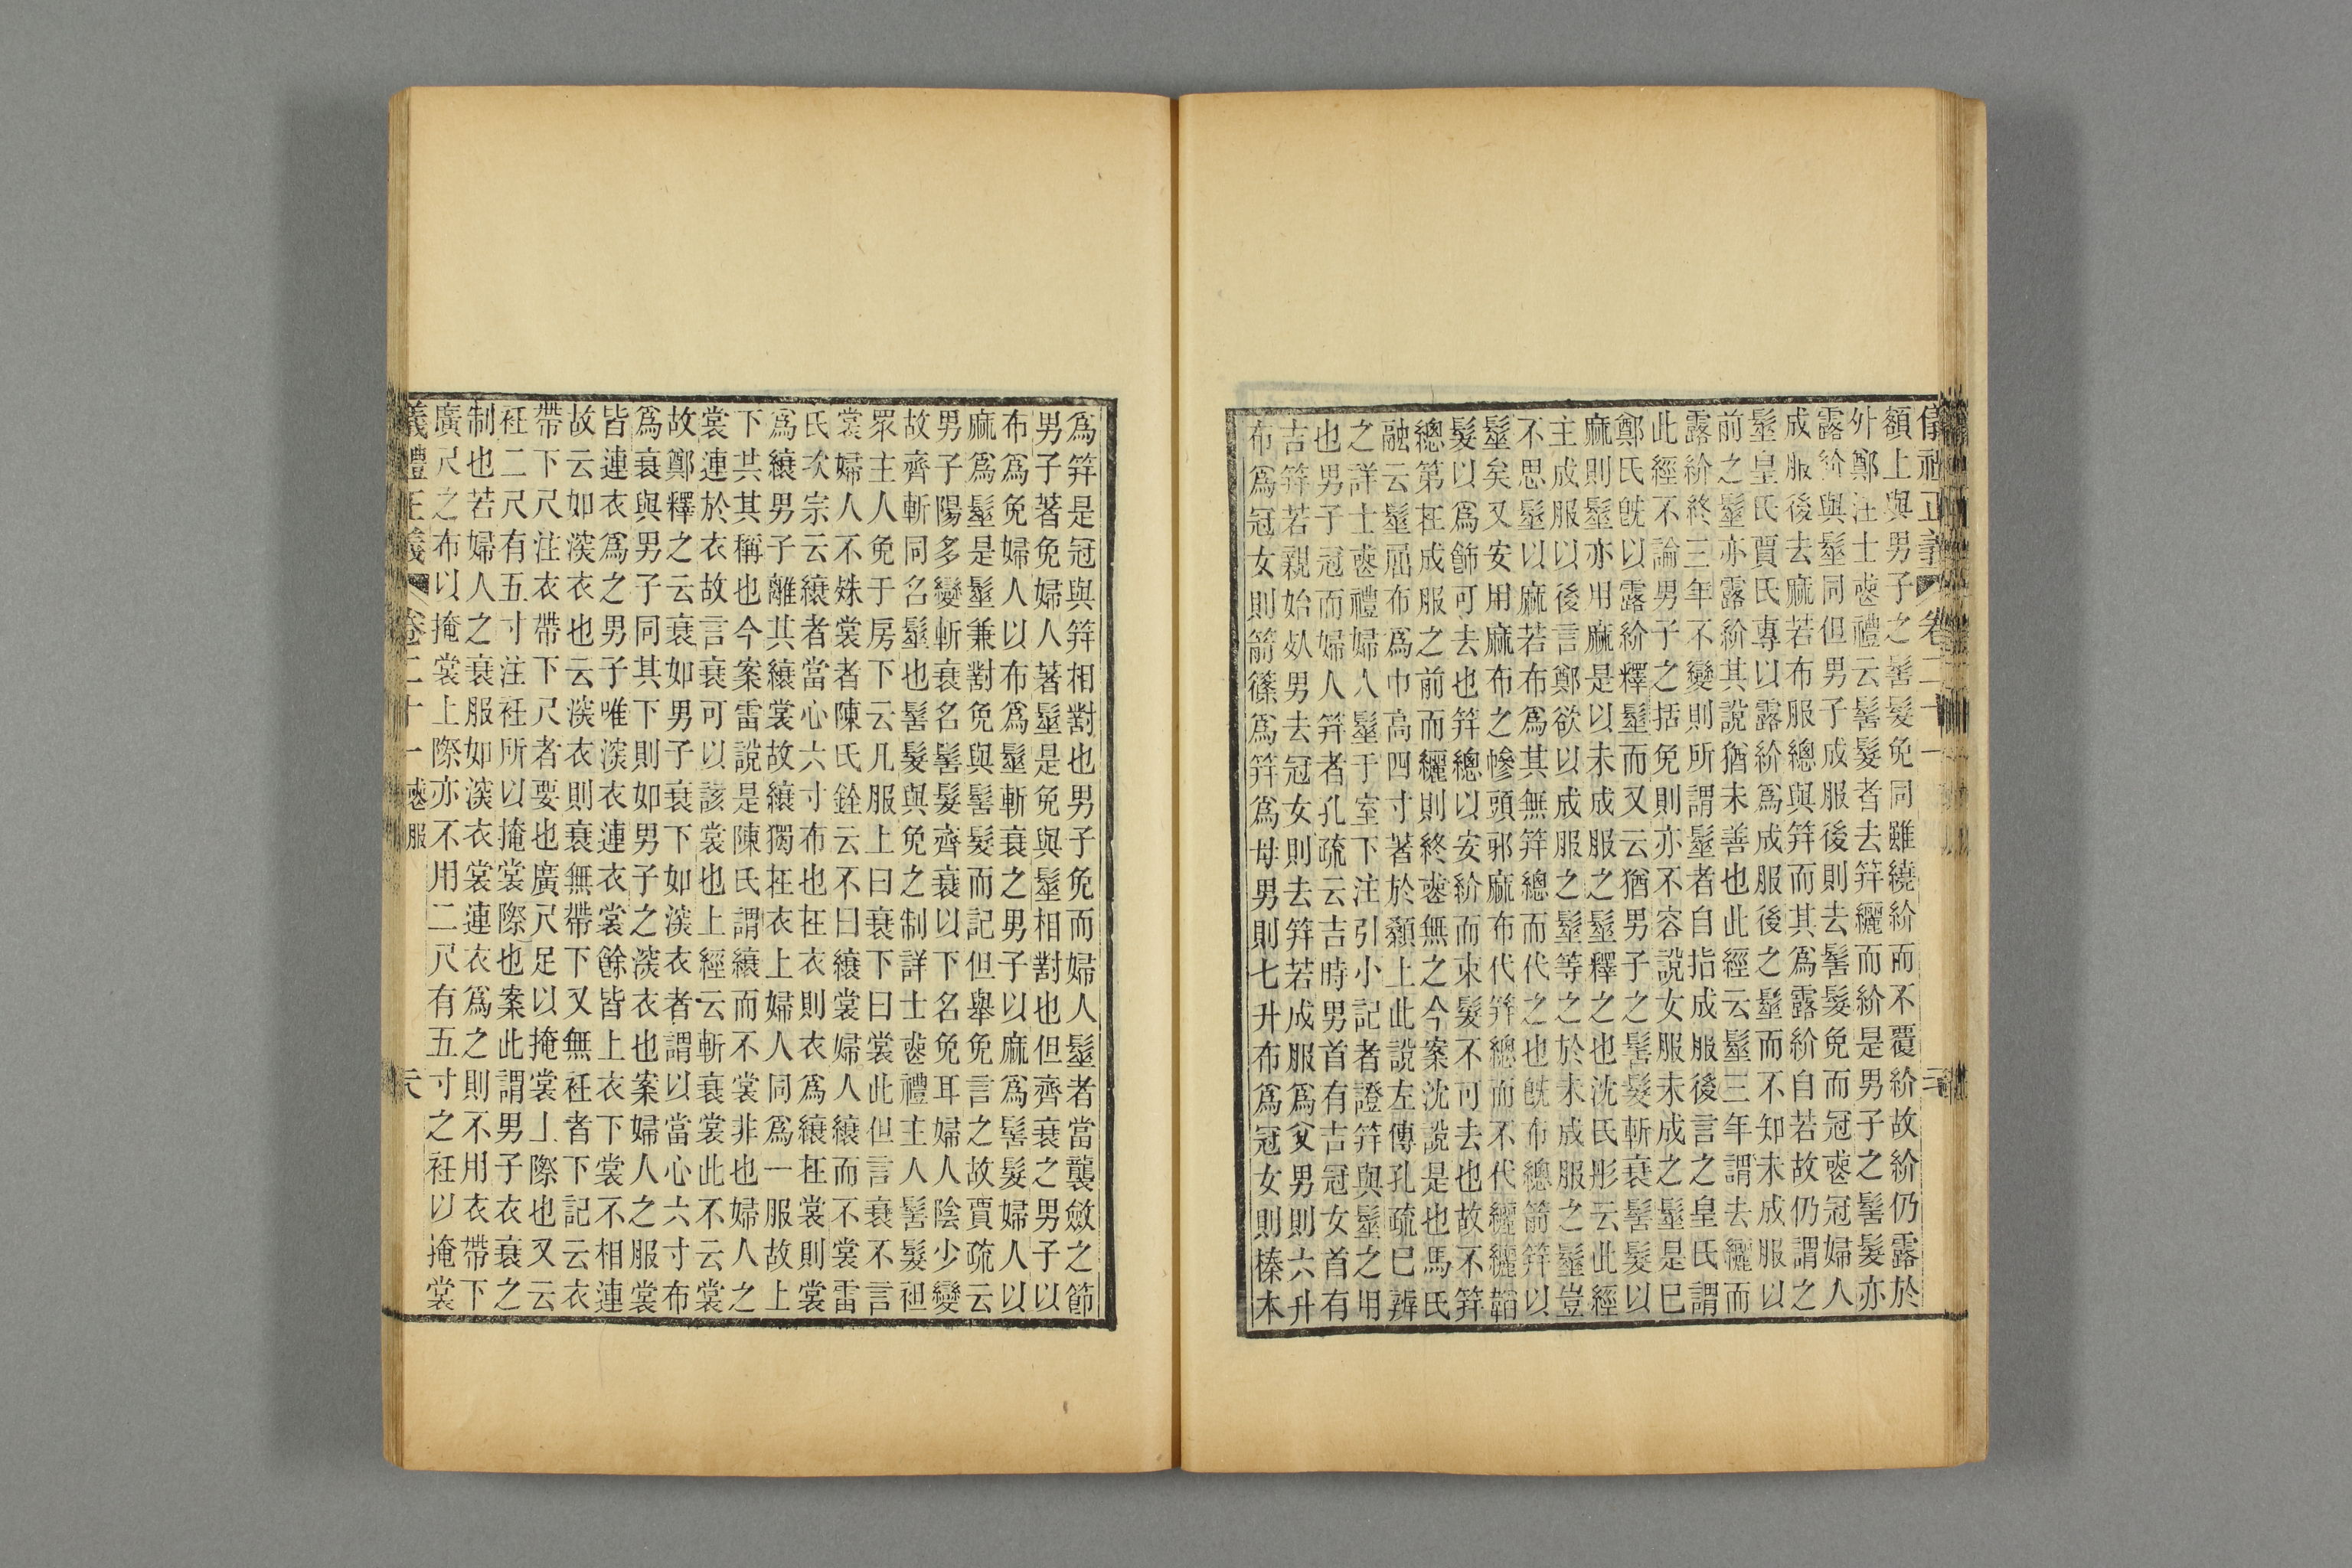 儀禮正義 卷二十一
額上與男子之髻髮免同雖繞紒而不覆紒故紒仍露於
外鄭注士喪禮云髻髮者去笄纚而紒是男子之髻髮亦
露紒與髽同但男子成服後則去髻髮免而冠喪冠婦人
成服後去麻若布服總與笄而其爲露紒自若故仍謂之
髽皇氏賈氏專以露紒爲成服後之髽而不知未成服以
前之髽亦露紒其說猶未善也此經云髽三年謂去纚而
露紒終三年不變則所謂髽者自指成服後言之皇氏謂
此經不論男子之括免則亦不容說女服未成之髽是巳
鄭氏旣以露紒釋髽而又云猶男子之髻髮斬衰髻髮以
麻則髽亦用麻是以未成服之髽釋之也沈氏彤云此經
主成服以後言鄭欲以成服之髽等之於未成服之髽豈
不思髽以麻若布爲其無笄總而代之也旣布總箭笄以
髽矣又安用麻布之幓頭邪麻布代笄總而不代纚纚韜
髮以爲飾可去也笄總以安紒而束髮不可去也故不笄
總第在成服之前而纚則終喪無之今案沈說是也馬氏
融云髽屈布爲巾高四寸著於顙上此說左傳孔疏巳辨
之詳士喪禮婦人髽于室下注引小記者證笄與髽之用
也男子冠而婦人笄者孔疏云吉時男首有吉冠女首有
吉笄若親始死男去冠女則去笄若成服爲父男則六升
布爲冠女則箭篠爲笄爲母男則七升布爲冠女則榛木
爲笄是冠與笄相對也男子免而婦人髽者當襲斂之節
男子著免婦人著髽是免與髽相對也但齊衰之男子以
布爲免婦人以布爲髽斬衰之男子以麻爲髻髮婦人以
麻爲髽是髽兼對免與髻髮而記但舉免言之故賈疏云
男子陽多變斬衰名髻髮齊衰以下名免耳婦人陰少變
故齊斬同名髽也髻髮與免之制詳士喪禮主人髻髮袒
眾主人免于房下云凡服上曰衰下曰裳此但言衰不言
裳婦人不殊裳者陳氏銓云不曰纕裳婦人纕而不裳雷
氏次宗云纕者當心六寸布也在衣則衣爲纕在裳則裳
爲纕男子離其纕裳故纕獨在衣上婦人同爲一服故上
下共其稱也今案雷說是陳氏謂纕而不裳非也婦人之
裳連於衣故言衰可以該裳也上經云斬衰裳此不云裳
故鄭釋之云衰如男子衰下如深衣者謂以當心六寸布
爲衰與男子同其下則如男子之深衣也案婦人之服裳
皆連衣爲之男子唯深衣連衣裳餘皆上衣下裳不相連
故云如深衣也云深衣則衰無帶下又無衽者下記云衣
帶下尺注衣帶下尺者要也廣尺足以掩裳上際也又云
衽二尺有五寸注衽所以掩裳際也案此謂男子衣衰之
制也若婦人之衰服如深衣裳連衣爲之則不用衣帶下
廣尺之布以掩裳上際亦不用二尺有五寸之衽以掩裳
儀禮正義 卷二十一 喪服